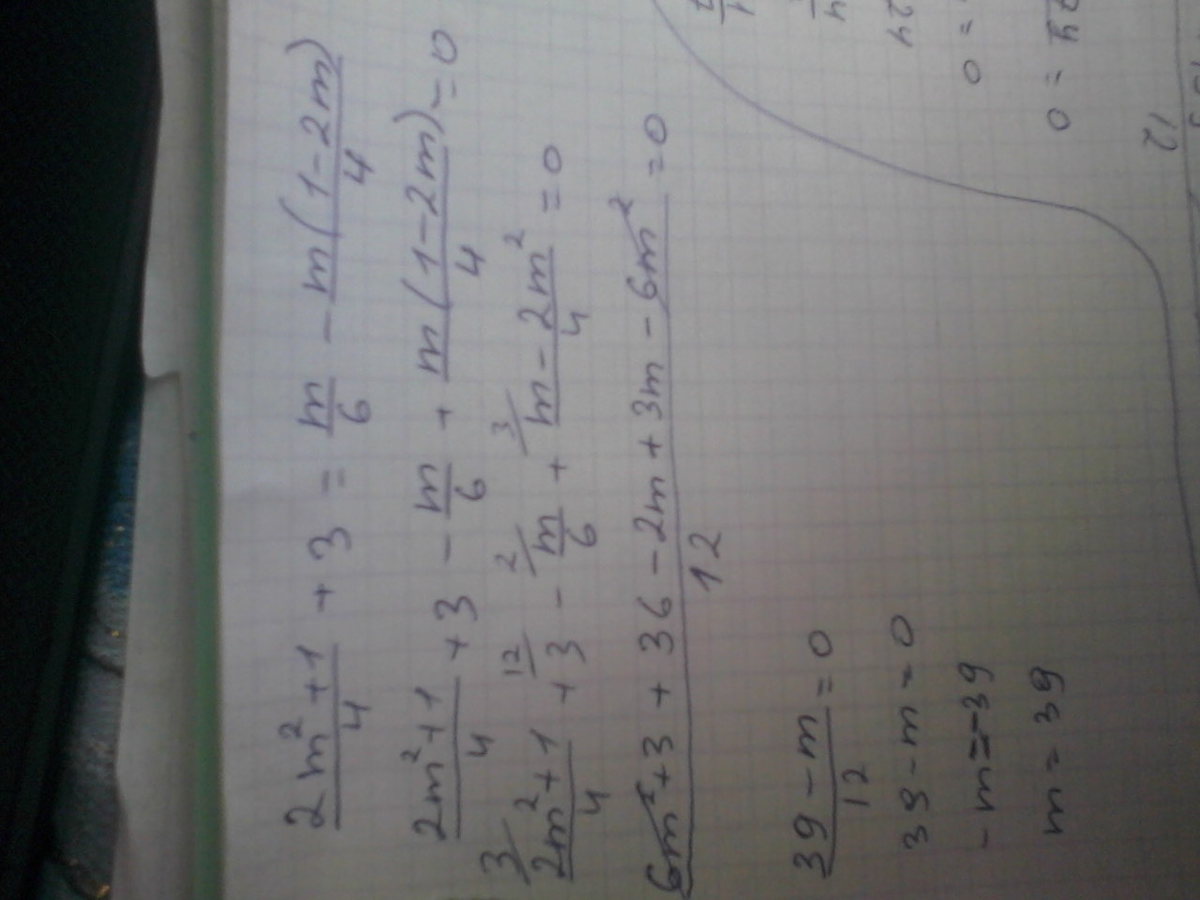 (2m²+1)/4 + 3 = m/6 - m(1-2m)/4
(2m²+1)/4 + 3 - m/6 + m(1-2m)/4 = 0
3/ (2m²+1)/4 + 12/ 3 - 2/ m/6 + 3/ (m-2m²)/4 = 0
(6m²+3+36-2m+3m-6m²)/12 = 0
(39-m)/12 = 0
39-m=0
-m=-39
m=39
24
0=
0=
12